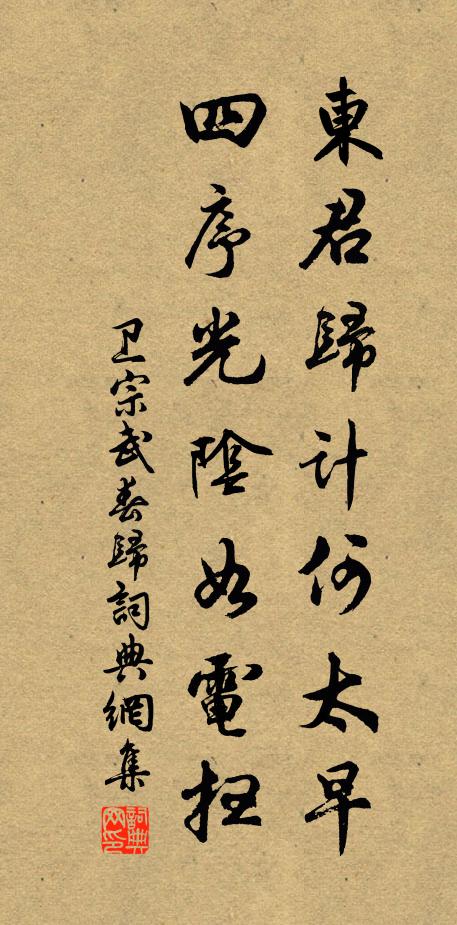 東君歸計何太早
四序光陰如電扫
卫宗武春歸詞典網集
詞典網印